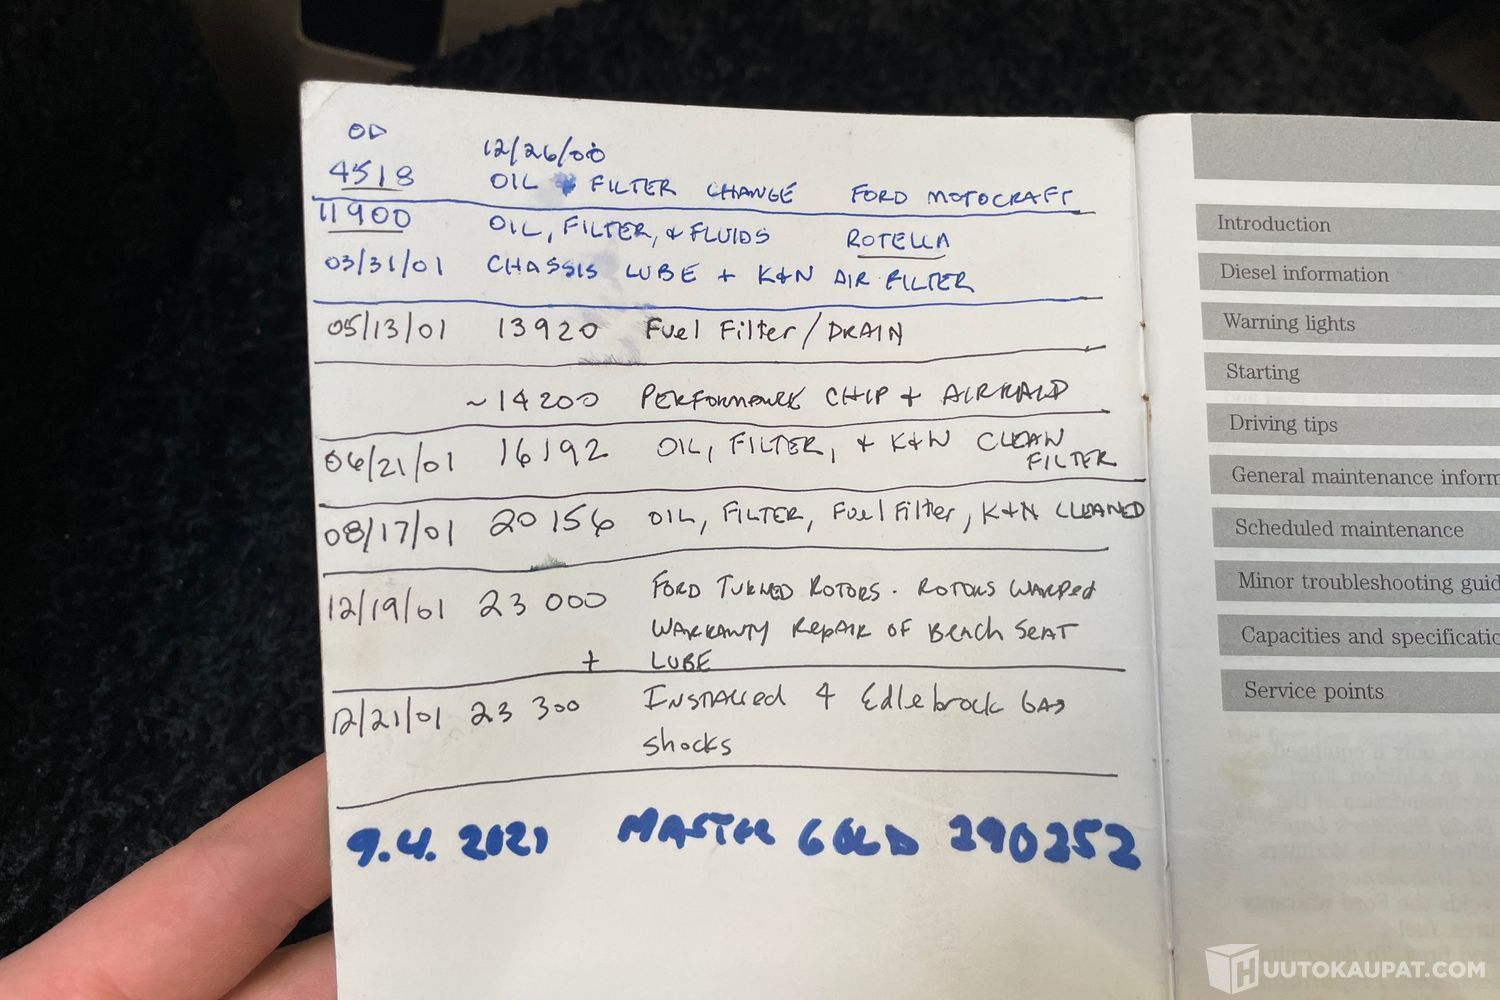 OD
4518 12/26/00
OIL + FILTER CHANGE FORD MOTOCRAFT
11900 OIL, FILTER, & FLUIDS ROTELLA
03/31/01 CHASSIS LUBE + K&N AIR FILTER
05/13/01 13920 Fuel Filter/DRAIN
~14200 PERFORMANCE CHIP + AIRRAID
06/21/01 16192 OIL, FILTER, & K&N CLEAN
FILTER
08/17/01 20156 OIL, FILTER, Fuel Filter, K&N CLEANED
12/19/01 23 000 FORD TURNED ROTORS. ROTORS WARPED
WARRANTY REPAIR OF Bench SEAT
+ LUBE
12/21/01 23 300 INSTALLED 4 Edlebrock GAS
shocks
9.4.2021 MASTER GOLD 290252
Introduction
Diesel information
Warning lights
Starting
Driving tips
General maintenance inform
Scheduled maintenance
Minor troubleshooting guid
Capacities and specificatio
Service points
HUUTOKAUPAT.COM